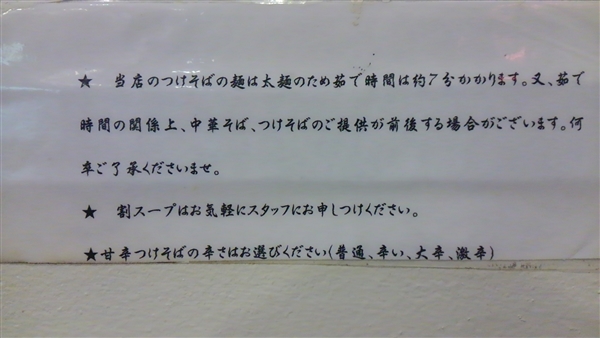 ★ 当店のつけそばの麺は太麺のため茹で時間は約7分かかります。又、茹で
時間の関係上、中華そば、つけそばのご提供が前後する場合がございます。何
卒ご了承くださいませ。
★ 割スープはお気軽にスタッフにお申しつけください。
★甘辛つけそばの辛さはお選びください(普通、辛い、大辛、激辛)